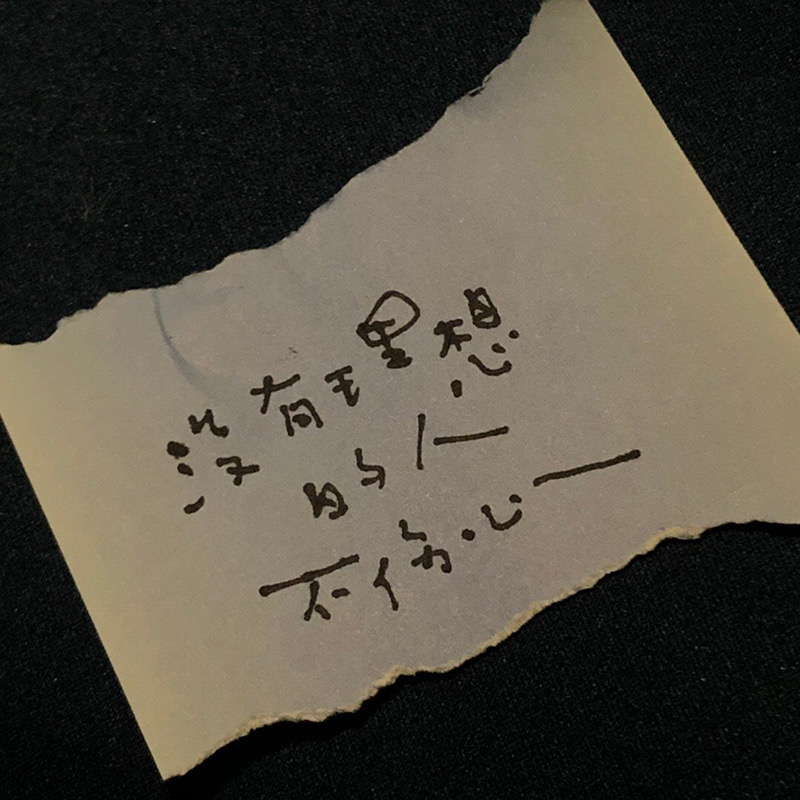 没有理想
的人
不伤心